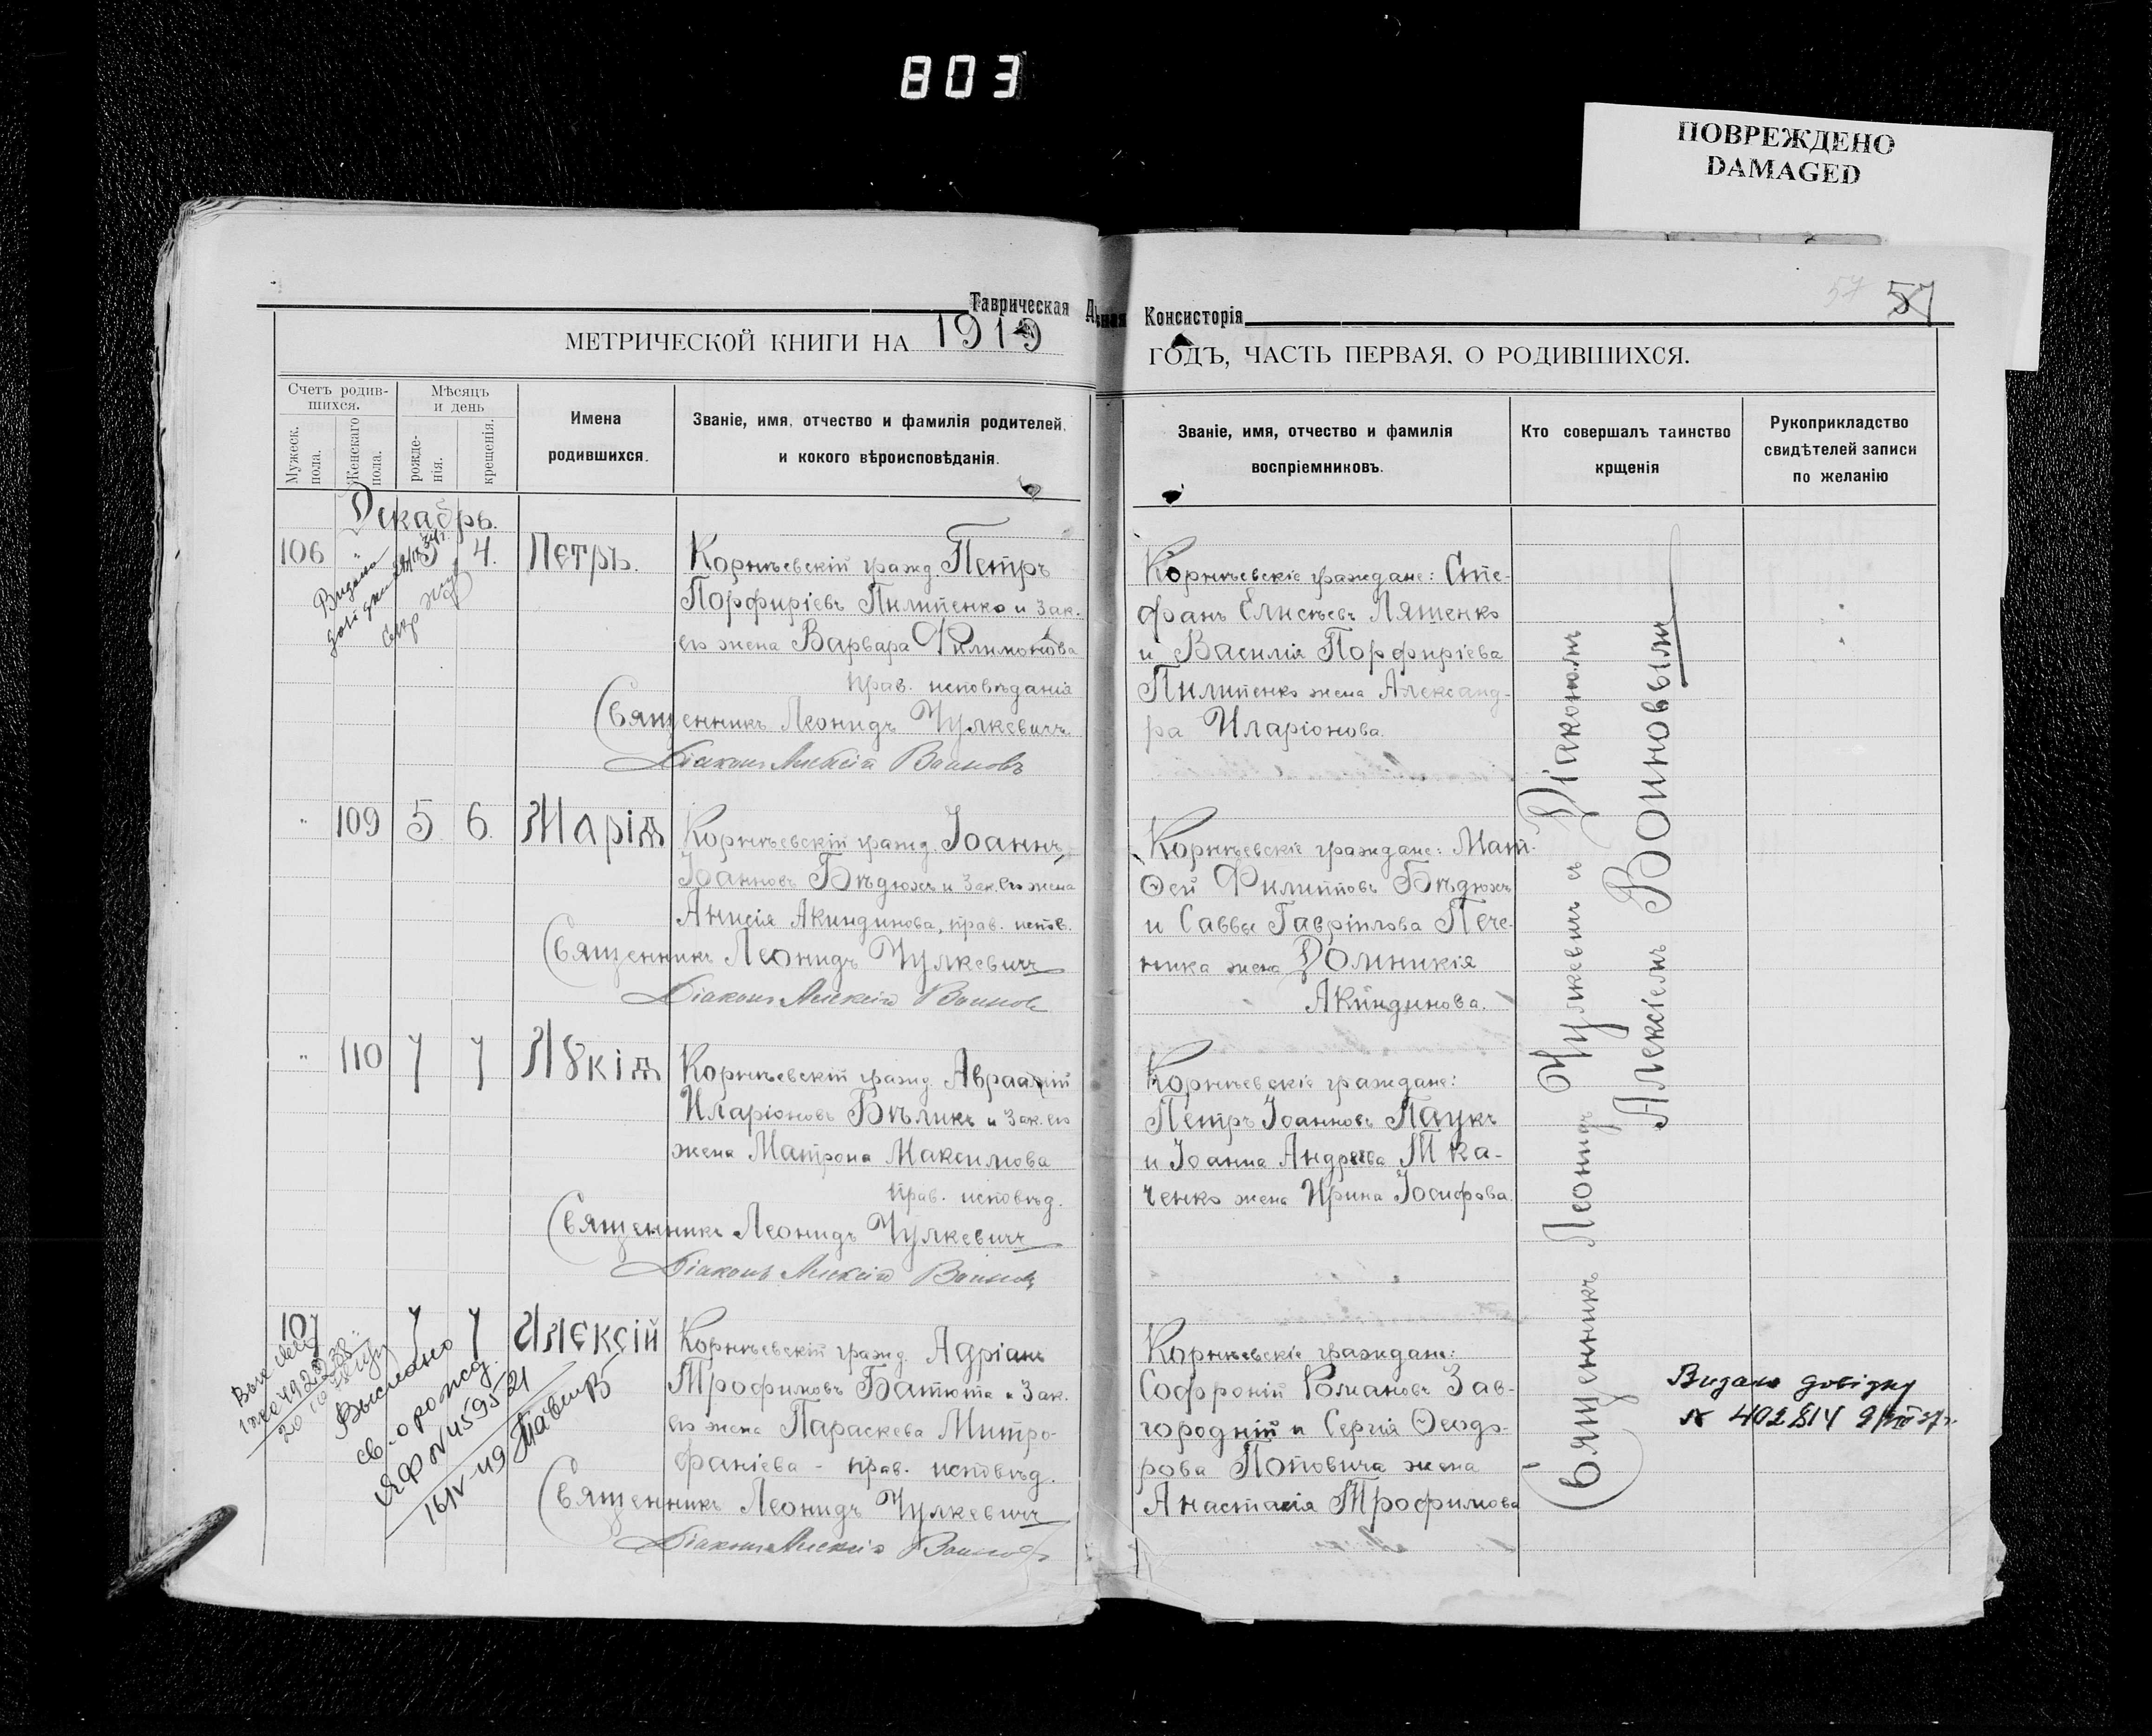 803
ПОВРЕЖДЕНО
DAMAGED
Таврическая
Консисторія
57
57
МЕТРИЧЕСКОЙ КНИГИ НА 1919
ГОДЪ, ЧАСТЬ ПЕРВАЯ, О РОДИВШИХСЯ.
Счетъ родив-
шихся.
Мужеск.
пола.
Женскаго
пола.
Мѣсяцъ
и день
рожде-
нія.
крещенія.
Имена
родившихся.
Званіе, имя, отчество и фамилія родителей,
и кокого вѣроисповѣданія.
Званіе, имя, отчество и фамилія
воспріемниковъ.
Кто совершалъ таинство
крщенія
Рукоприкладство
свидѣтелей записи
по желанію
Декабрь.
106 " 3 4. Петръ.
Видано
Корнѣевскій гражд. Петръ
Порфиріевъ Пилипенко и зак.
его жена Варвара Филимонова
прав. исповѣданія
Священникъ Леонидъ Чулкевичъ
Діаконъ Алексій Воиновъ
Корнѣевскіе граждане: Сте-
фанъ Елисѣевъ Ляшенко
и Василія Порфиріева
Пилипенко жена Александ-
ра Иларіонова.
" 109 5 6. Марія
Корнѣевскій гражд. Іоаннъ
Іоанновъ Бѣдюхъ и зак. его жена
Анисія Акиндинова, прав. испов.
Священникъ Леонидъ Чулкевичъ
Діаконъ Алексій Воиновъ
Корнѣевскіе граждане: Мат-
ѳей Филипповъ Бѣдюхъ
и Саввы Гавріилова Пече-
ника жена Домникія
Акиндинова.
" 110 7 7 Лꙋкія
Корнѣевскій гражд. Авраамій
Иларіоновъ Бѣликъ и зак. его
жена Матрона Максимова
прав. исповѣд.
Священникъ Леонидъ Чулкевичъ
Діаконъ Алексій Воиновъ
Корнѣевскіе граждане:
Петръ Іоанновъ Паукъ
и Іоанна Андреева Тка-
ченко жена Ирина Іосифова.
107 7 7 Алексій
Выслано
св. о рожд.
ЯФ N 459521
16/IV-49
Корнѣевскій гражд. Адріанъ
Трофимовъ Батюта и зак.
его жена Параскева Митро-
фаніева - прав. исповѣд.
Священникъ Леонидъ Чулкевичъ
Діаконъ Алексій Воиновъ
Корнѣевскіе граждане:
Софроній Романовъ Зав-
городній и Сергія Ѳеодо-
рова Поповича жена
Анастасія Трофимова
Священникъ Леонидъ Чулкевичъ и Діакономъ
Алексіемъ Воиновымъ
Видано довідку
№ 402814 9/VII 37 г.